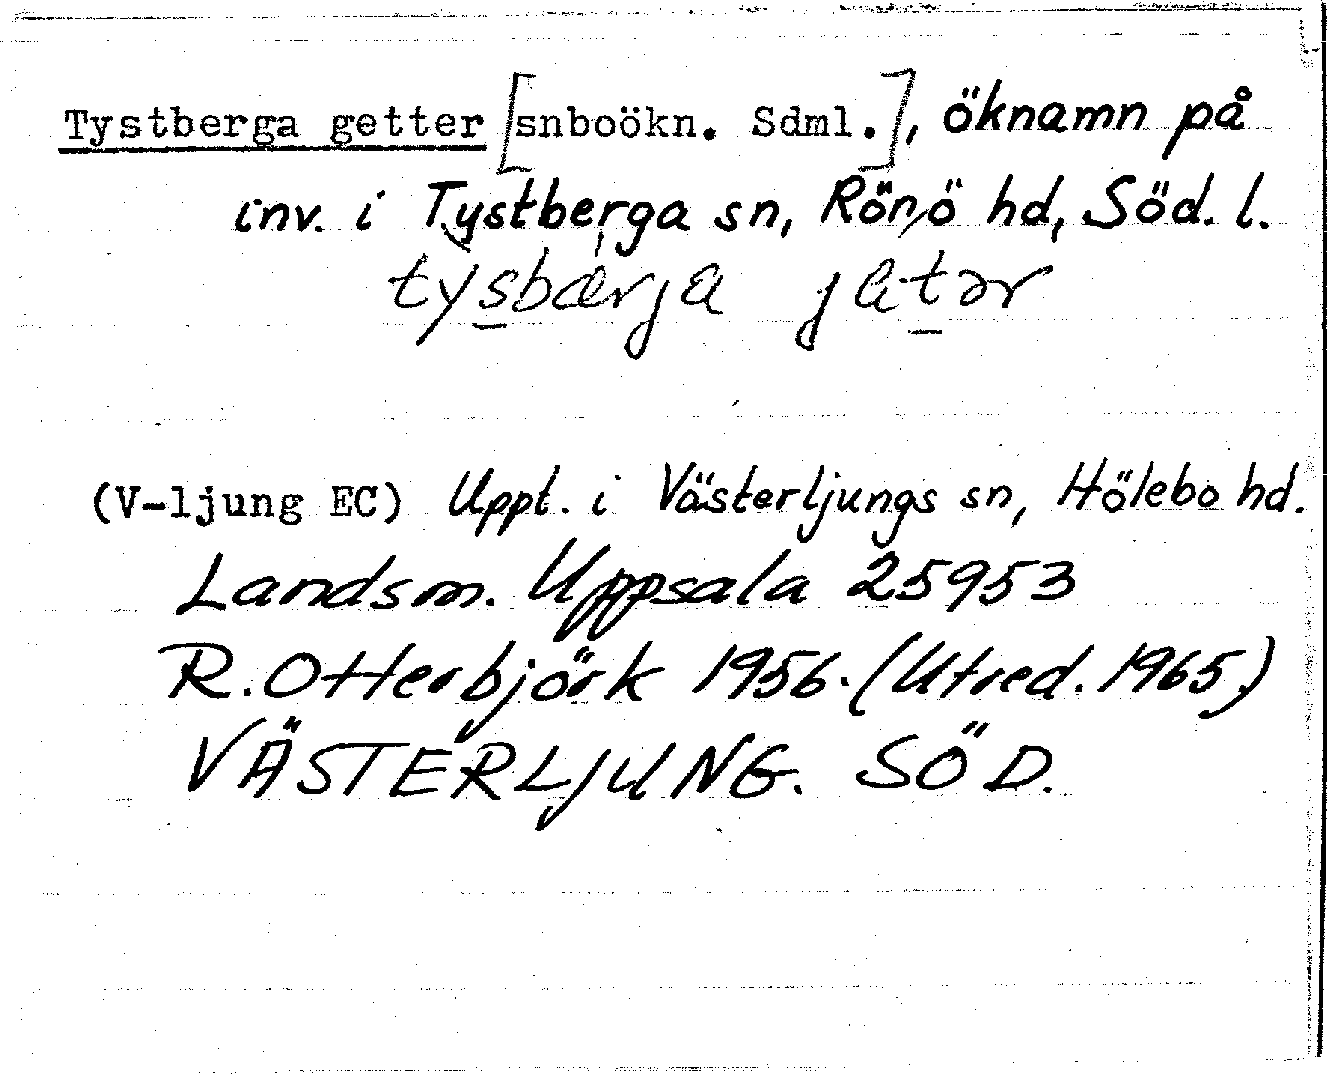 Tystberga getter [snboökn. Sdml.], öknamn på
inv. i Tystberga sn, Rönö hd, Söd. l.
tysbærja jatər
(V-ljung EC) Uppt. i Västerljungs sn, Hölebo hd.
Landsm. Uppsala 25953
R. Otterbjörk 1956. (Utred. 1965)
VÄSTERLJUNG. SÖD.